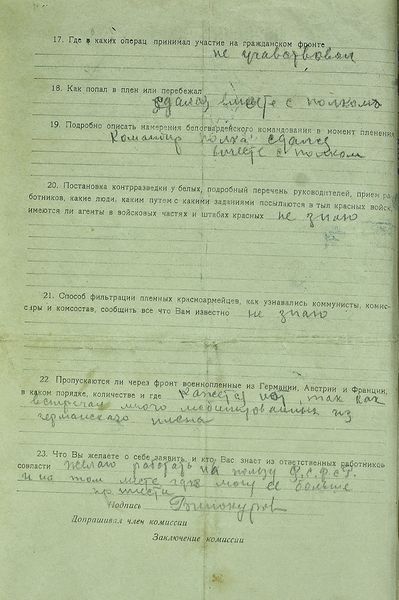 17. Где в каких операц принимал участие на гражданском фронте
не учавствовал
18. Как попал в плен или перебежал
сдался вместе с полком
19. Подробно описать намерения белогвардейского командования в момент пленения
Командир полка сдался
вместе с полком
20. Постановка контрразведки у белых, подробный перечень руководителей, прием ра-
ботников, какие люди, каким путем с какими заданиями посылаются в тыл красных войск,
имеются ли агенты в войсковых частях и штабах красных не знаю
21. Способ фильтрации пленных красноармейцев, как узнавались коммунисты, комис-
сары и комсостав, сообщить все что Вам известно не знаю
22 Пропускаются ли через фронт военнопленные из Германии, Австрии и Франции,
в каком порядке, количестве и где Кажется да, так как
встречал много мобилизованных из
германского плена
23. Что Вы желаете о себе заявить, и кто Вас знает из ответственных работников
совласти желаю работать на пользу Р.С.Ф.С.Р.
и на том месте где могу ее больше
принести
Подпись Винокуров
Допрашивал член комиссии
Заключение комиссии